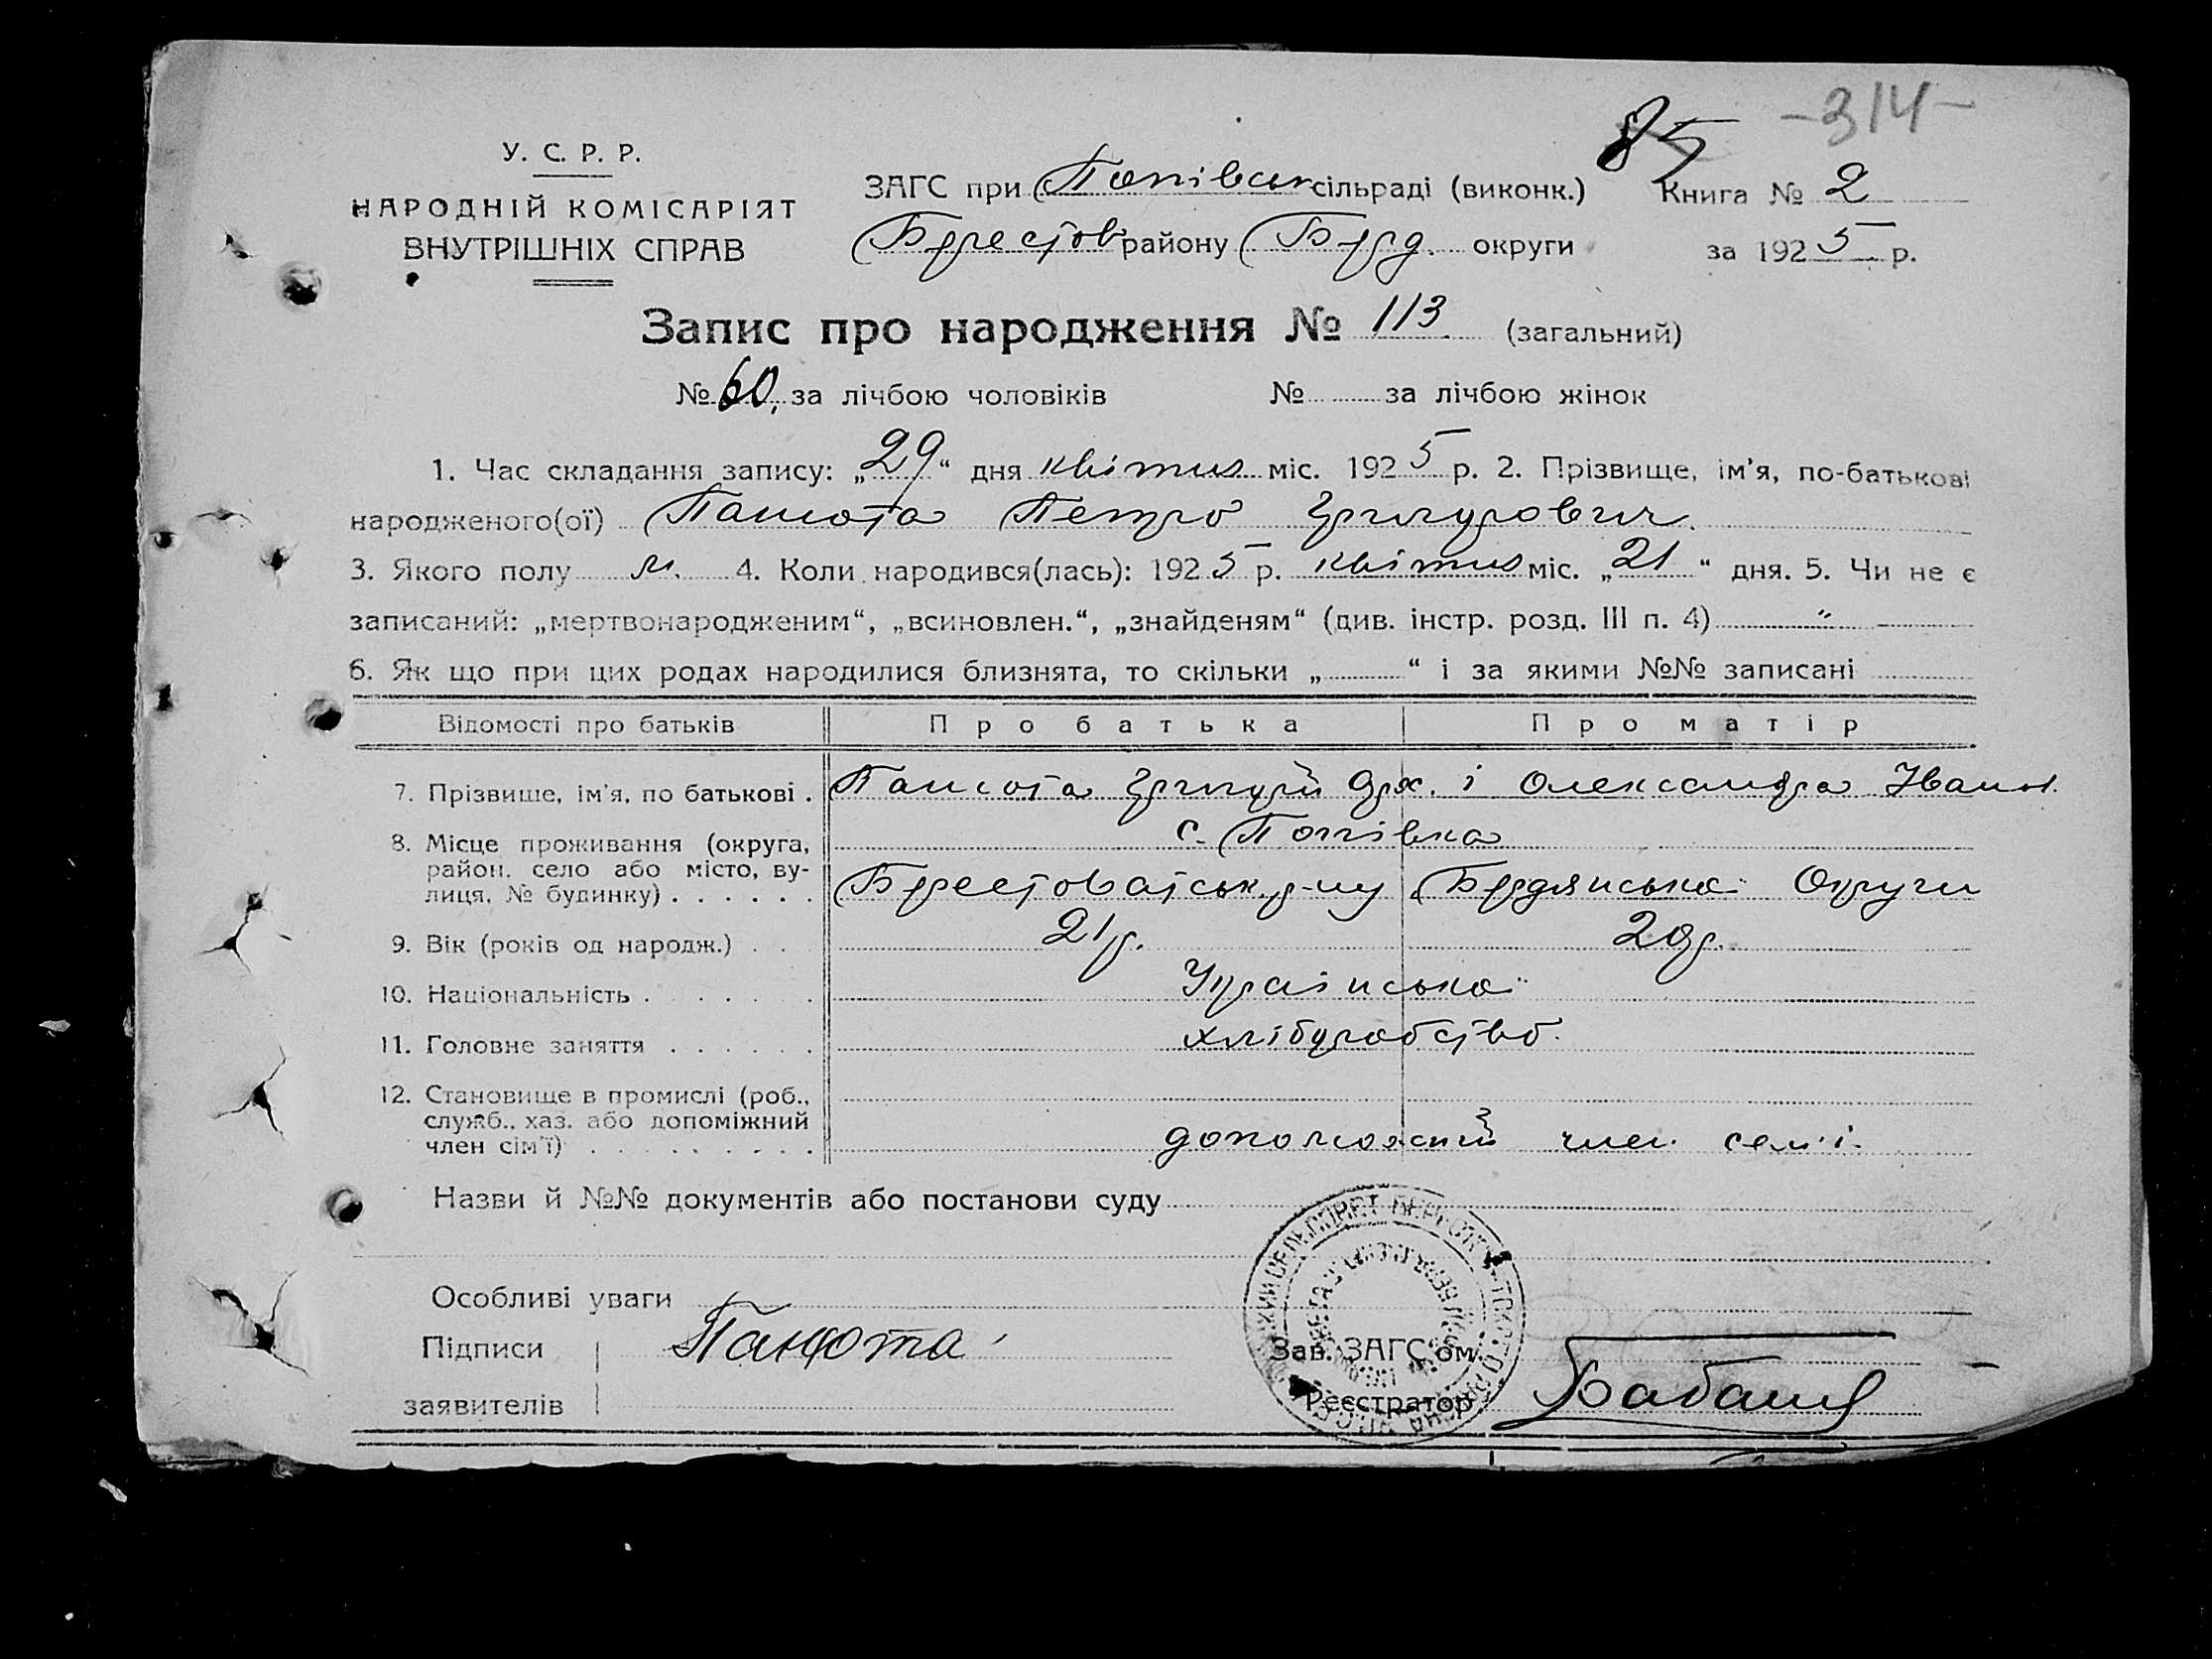 85 -314-
У. С. Р. Р.
НАРОДНІЙ КОМІСАРІЯТ
ВНУТРІШНІХ СПРАВ
ЗАГС при Попівськ сільраді (виконк.) Книга № 2
Берестов району Берд. округи за 1925 р.
Запис про народження № 113 (загальний)
№ 60, за лічбою чоловіків № за лічбою жінок
1. Час складання запису: „29“ дня квітня міс. 1925 р. 2. Прізвище, ім'я, по-батькові
народженого(ої) Панюта Петро Григорович.
3. Якого полу м. 4. Коли народився(лась): 1925 р. квітня міс. „21“ дня. 5. Чи не є
записаний: „мертвонародженим“, „всиновлен.“, „знайденям“ (див. інстр. розд. III п. 4) "
6. Як що при цих родах народилися близнята, то скільки „ “ і за якими №№ записані
Відомості про батьків Про батька Про матір
7. Прізвище, ім'я, по батькові . Панюта Григорій і Олександра Іван.
8. Місце проживання (округа, с. Попівка
район. село або місто, ву-
лиця, № будинку) . . . . . . Берестоватськ. р-ну Бердянської Округи
9. Вік (років од народж.) . . 21 р. 20 р.
10. Національність . . . . . . Українська
11. Головне заняття . . . . . . хліборобство.
12. Становище в промислі (роб.,
служб., хаз. або допоміжний
член сім'ї) . . . . . . . . . допоможний член. сем'ї.
Назви й №№ документів або постанови суду
Особливі уваги
Підписи Панюта
заявителів
Зав. ЗАГС'ом
Реєстратор